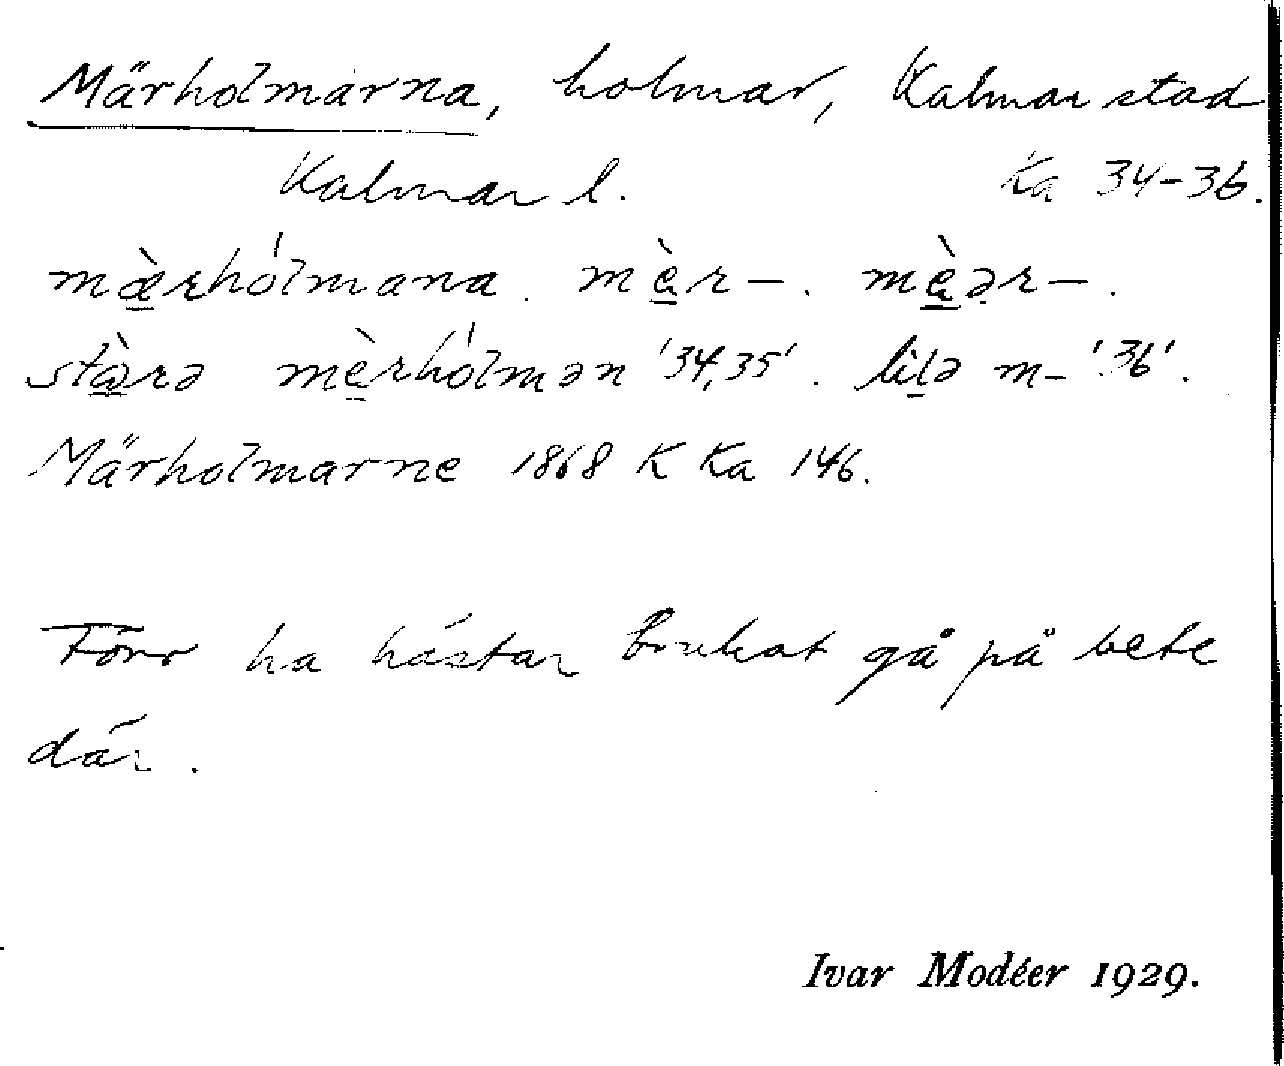 Märholmarna, holmar, Kalmar stad
Kalmar l. Ka 34-36.
mæ̀rhólmana. mèr-. mèər-.
stàrə mèrhólmən '34,35'. lìlə m- '36'.
Märholmarne 1868 K Ka 146.
Förr ha hästar brukat gå på bete
där.
Ivar Modéer 1929.